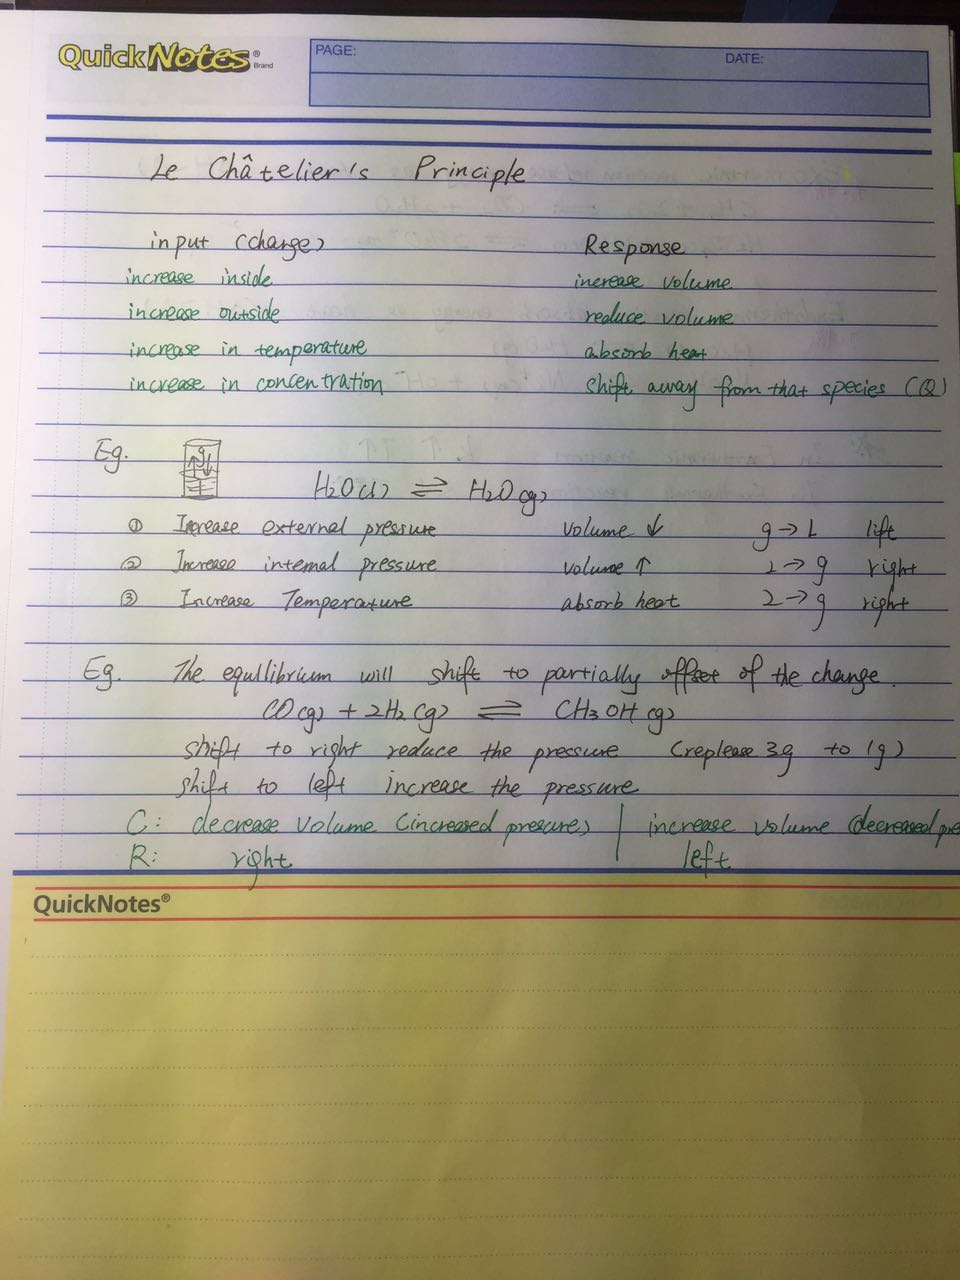 QuickNotes® Brand
PAGE: DATE:
Le Châtelier's Principle
input (charge) Response
increase inside increase volume
increase outside reduce volume
increase in temperature absorb heat
increase in concentration shift away from that species (Q)
Eg. g
H2O(l) ⇌ H2O(g)
① Increase external pressure volume ↓ g → L lift
② Increase internal pressure volume ↑ L → g right
③ Increase Temperature absorb heat L → g right
Eg. The equllibrium will shift to partially offset of the change.
CO(g) + 2H2(g) ⇌ CH3OH(g)
shift to right reduce the pressure (replease 3g to 1g)
shift to left increase the pressure
C: decrease volume (increased presure) | increase volume (decreased pre
R: right left
QuickNotes®